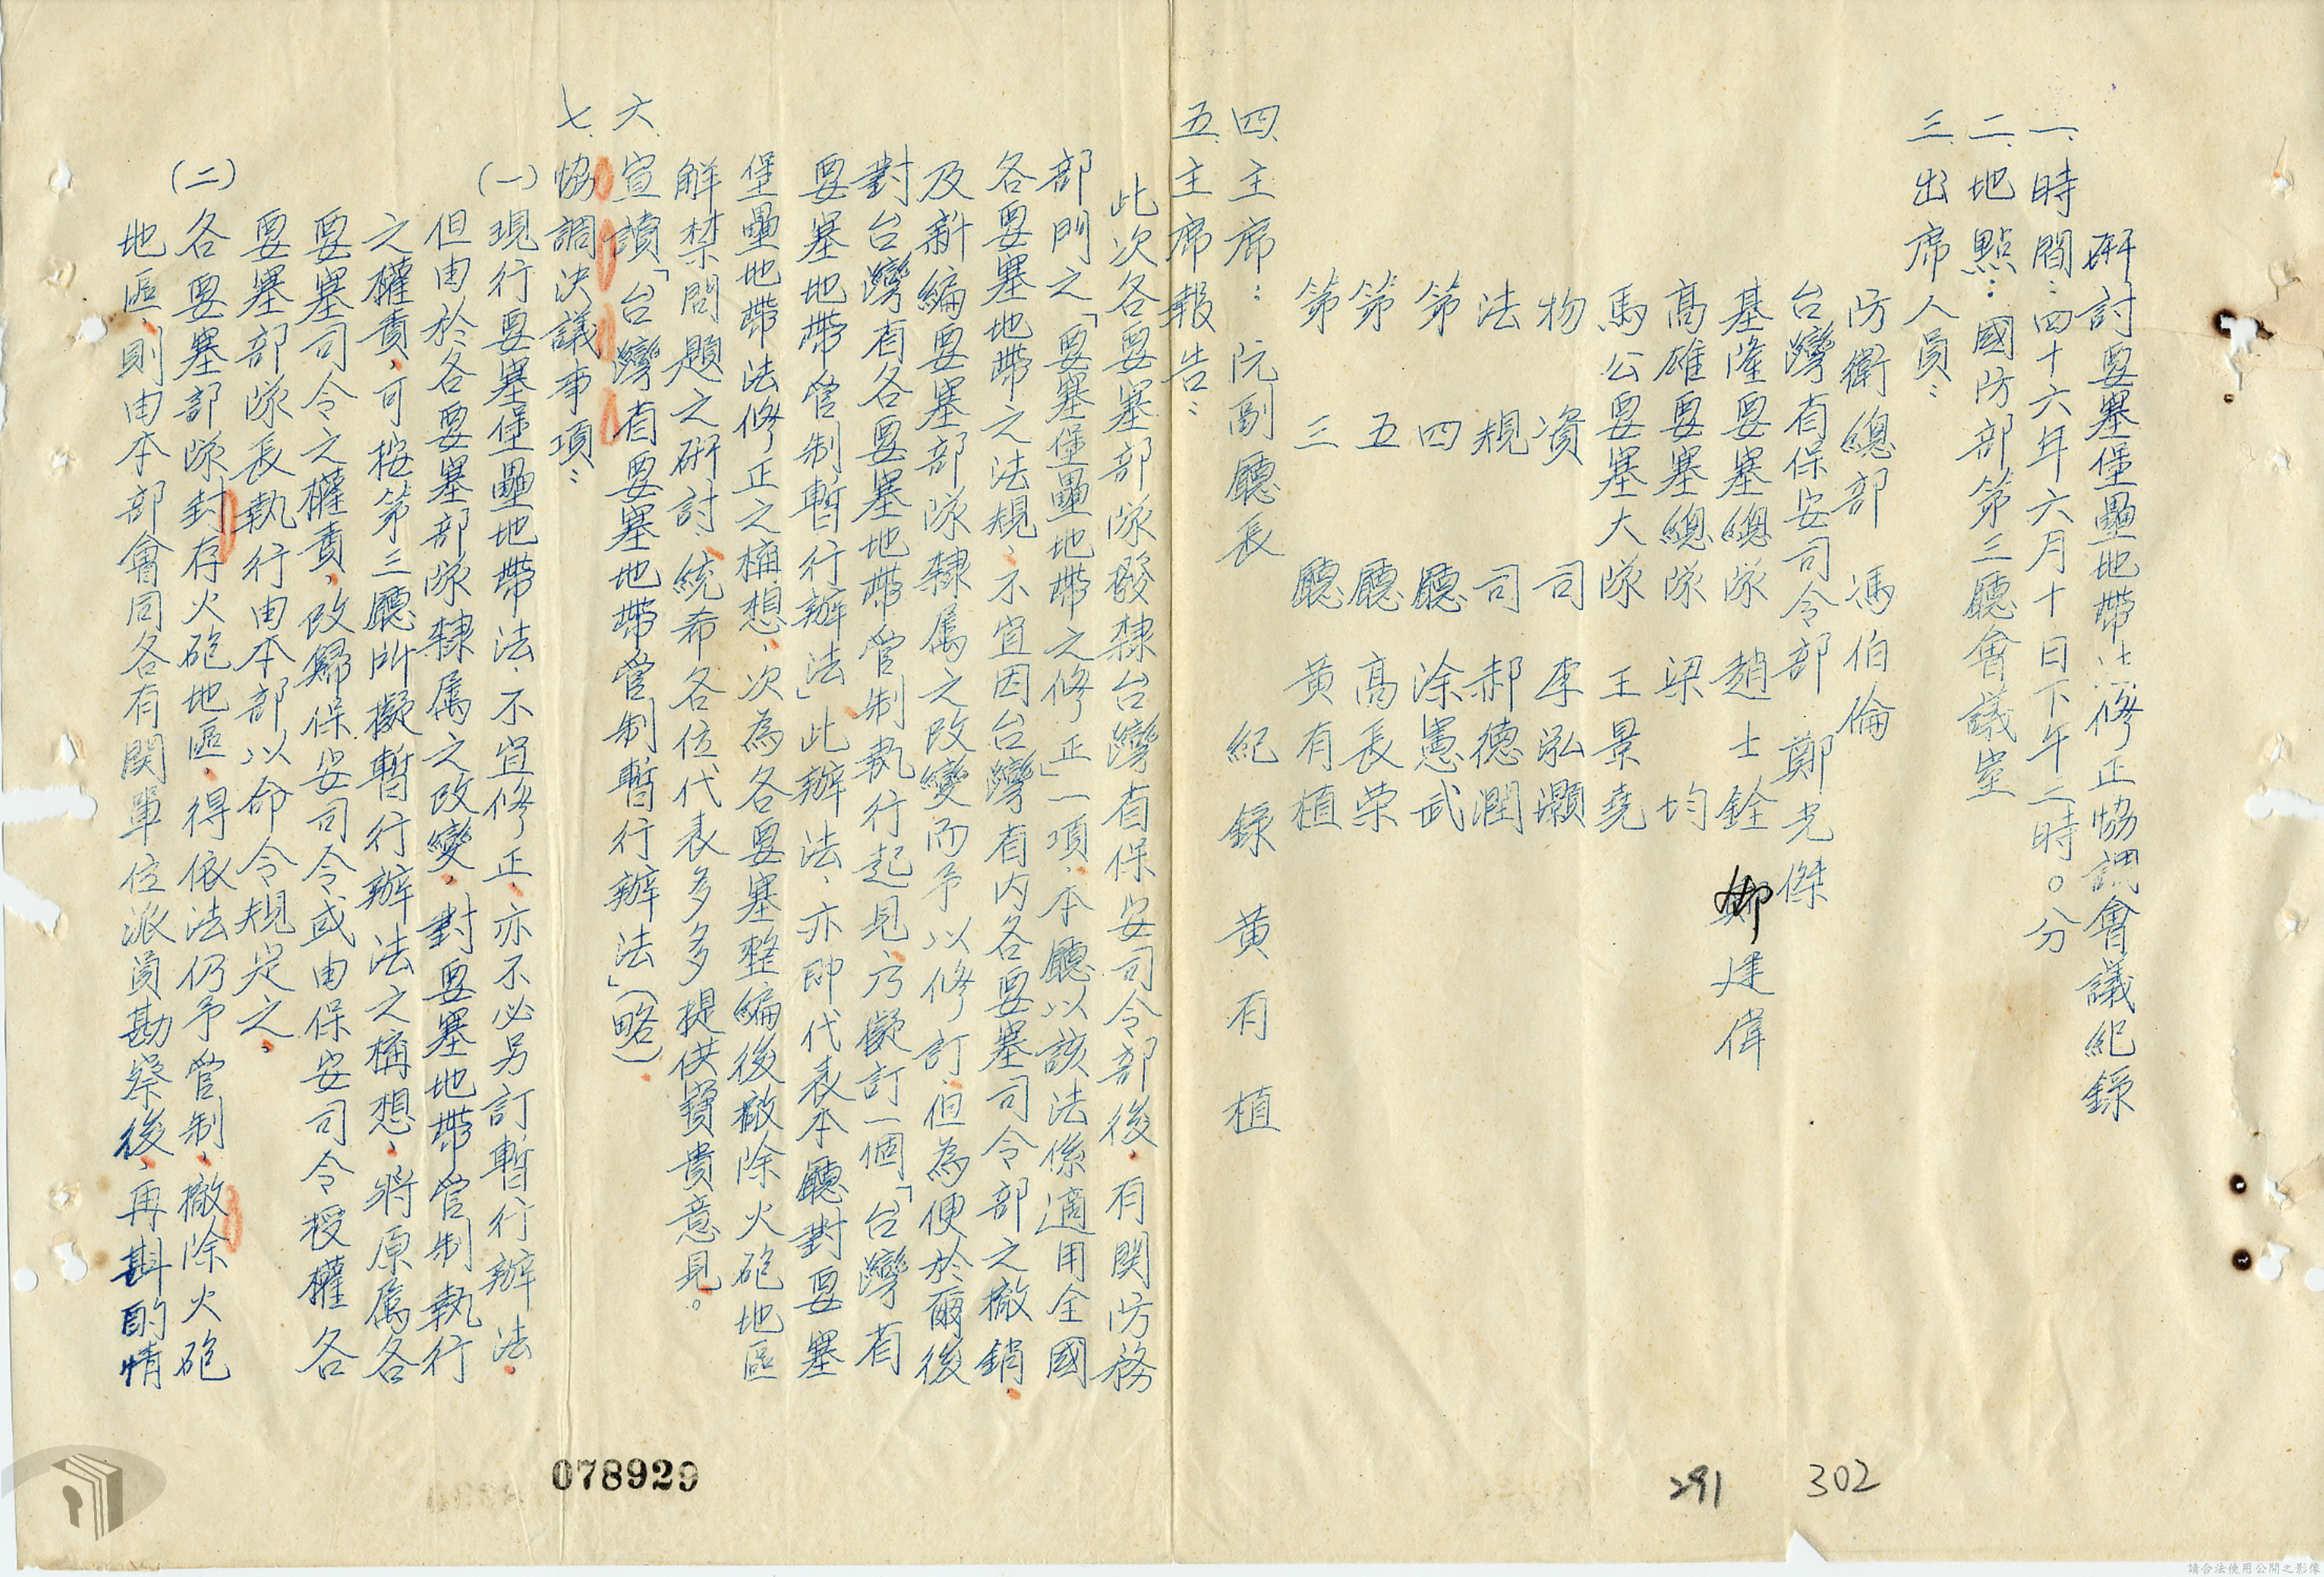 研討要塞堡壘地帶法修正協調會議紀錄
一、時間：四十六年六月十日下午二時○分
二、地點：國防部第三廳會議室
三、出席人員：
防衛總部　馮伯倫
台灣省保安司令部　鄭光傑
基隆要塞總隊　趙士銓　鄭建偉
高雄要塞總隊　梁均
馬公要塞大隊　王景堯
物資司　李泓灝
法規司　郝德潤
第四廳　涂憲武
第五廳　高長荣
第三廳　黃有植
四、主席：阮副廳長　紀錄　黃有植
五、主席報告：
此次各要塞部隊撥隸台灣省保安司令部後，有関防務
部門之「要塞堡壘地帶之修正」一項，本廳以該法係適用全國
各要塞地帶之法規，不宜因台灣省内各要塞司令部之撤銷，
及新編要塞部隊隸属之改變而予以修訂，但為便於爾後
對台灣省各要塞地帶管制執行起見，乃擬訂一個「台灣省
要塞地帶管制暫行辦法」此辦法，亦即代表本廳對要塞
堡壘地帶法修正之構想，次為各要塞整編後撤除火砲地區
解禁問題之研討，統希各位代表多多提供寶貴意見。
六、宣讀「台灣省要塞地帶管制暫行辦法」（略）
七、協調決議事項：
（一）現行要塞堡壘地帶法，不宜修正，亦不必另訂暫行辦法，
但由於各要塞部隊隸属之改變，對要塞地帶管制執行
之權責，可按第三廳所擬暫行辦法之構想，將原属各
要塞司令之權責，改歸保安司令或由保安司令授權各
要塞部隊長執行由本部以命令規定之。
（二）各要塞部隊封存火砲地區，得依法仍予管制，撤除火砲
地區，則由本部會同各有関單位派員勘察後，再斟酌情
078929
291
302
請合法使用公開之影像